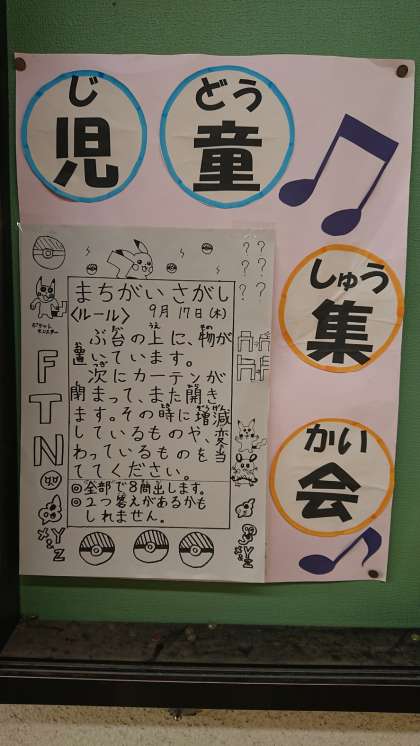 じ どう
児童
しゅう
集
かい
会
まちがいさがし
〈ルール〉 9月17日(木)
ぶ台の上に、物が
置いています。
次にカーテンが
閉まって、また開き
ます。その時に増減
しているものや、変
わっているものを当
ててください。
◎全部で8問出します。
◎2つ答えがあるかも
しれません。
F
T
N
X
Y
Z
X
Y
Z